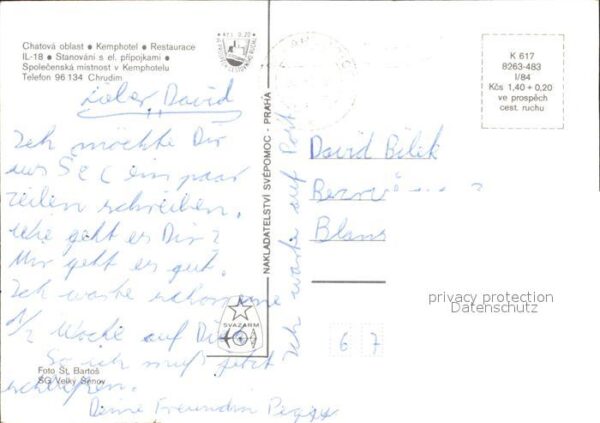 Chatová oblast ● Kemphotel ● Restaurace
IL-18 ● Stanování s el. přípojkami ●
Společenská místnost v Kemphotelu
Telefon 96 134 Chrudim
Kčs 0,20
K 617
8263-483
I/84
Kčs 1,40 + 0,20
ve prospěch
cest. ruchu
Lieber David
Ich möchte Dir
aus Seč ein paar
zeilen schreiben.
Wie geht es Dir?
Mir geht es gut.
Ich warte schon eine
1/2 Woche auf Dich
So ich muß jetzt
schließen.
Deine Freundin Peggy
Ich warte auf Post
NAKLADATELSTVÍ SVÉPOMOC - PRAHA
SVAZARM
David Bílek
Blans
6 7
Foto St. Bartoš
SG Velký Šenov
privacy protection
Datenschutz